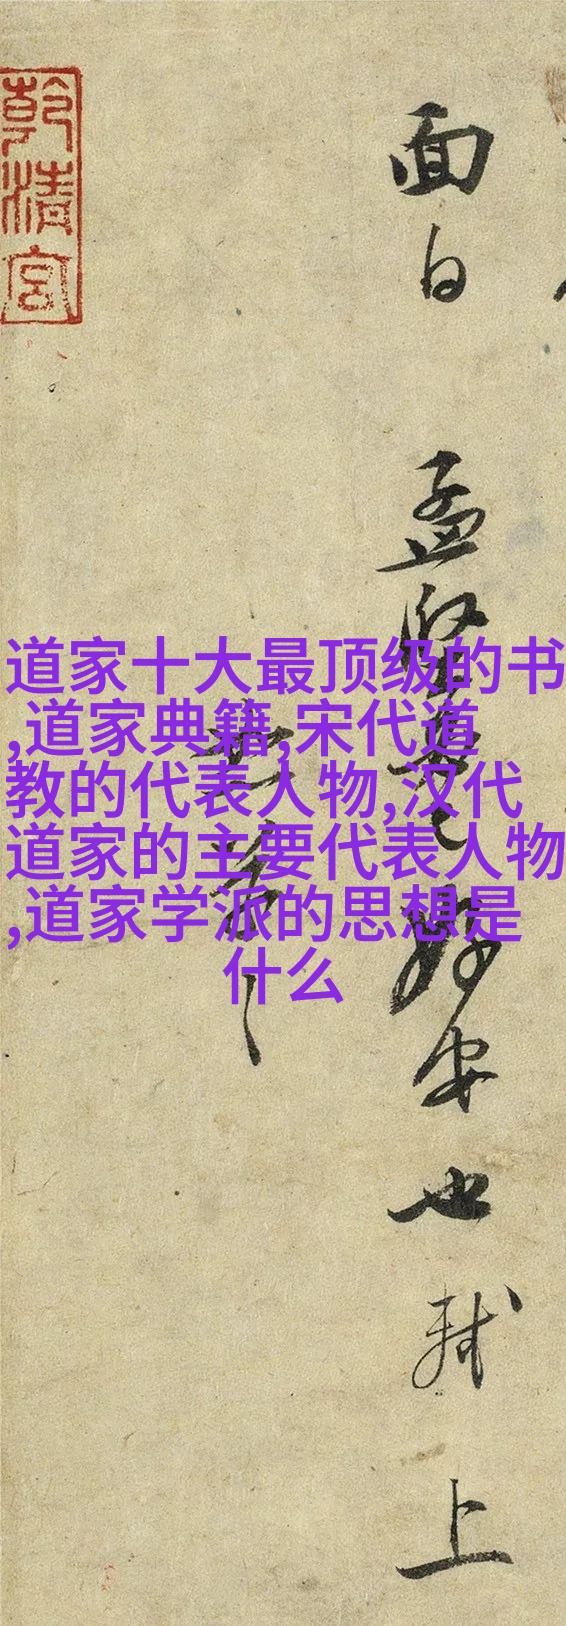 道家十大最顶级的书
,道家典籍,宋代道
教的代表人物,汉代
道家的主要代表人物
,道家学派的思想是
什么
面白 孟堅好安也 軾上
乾清宮